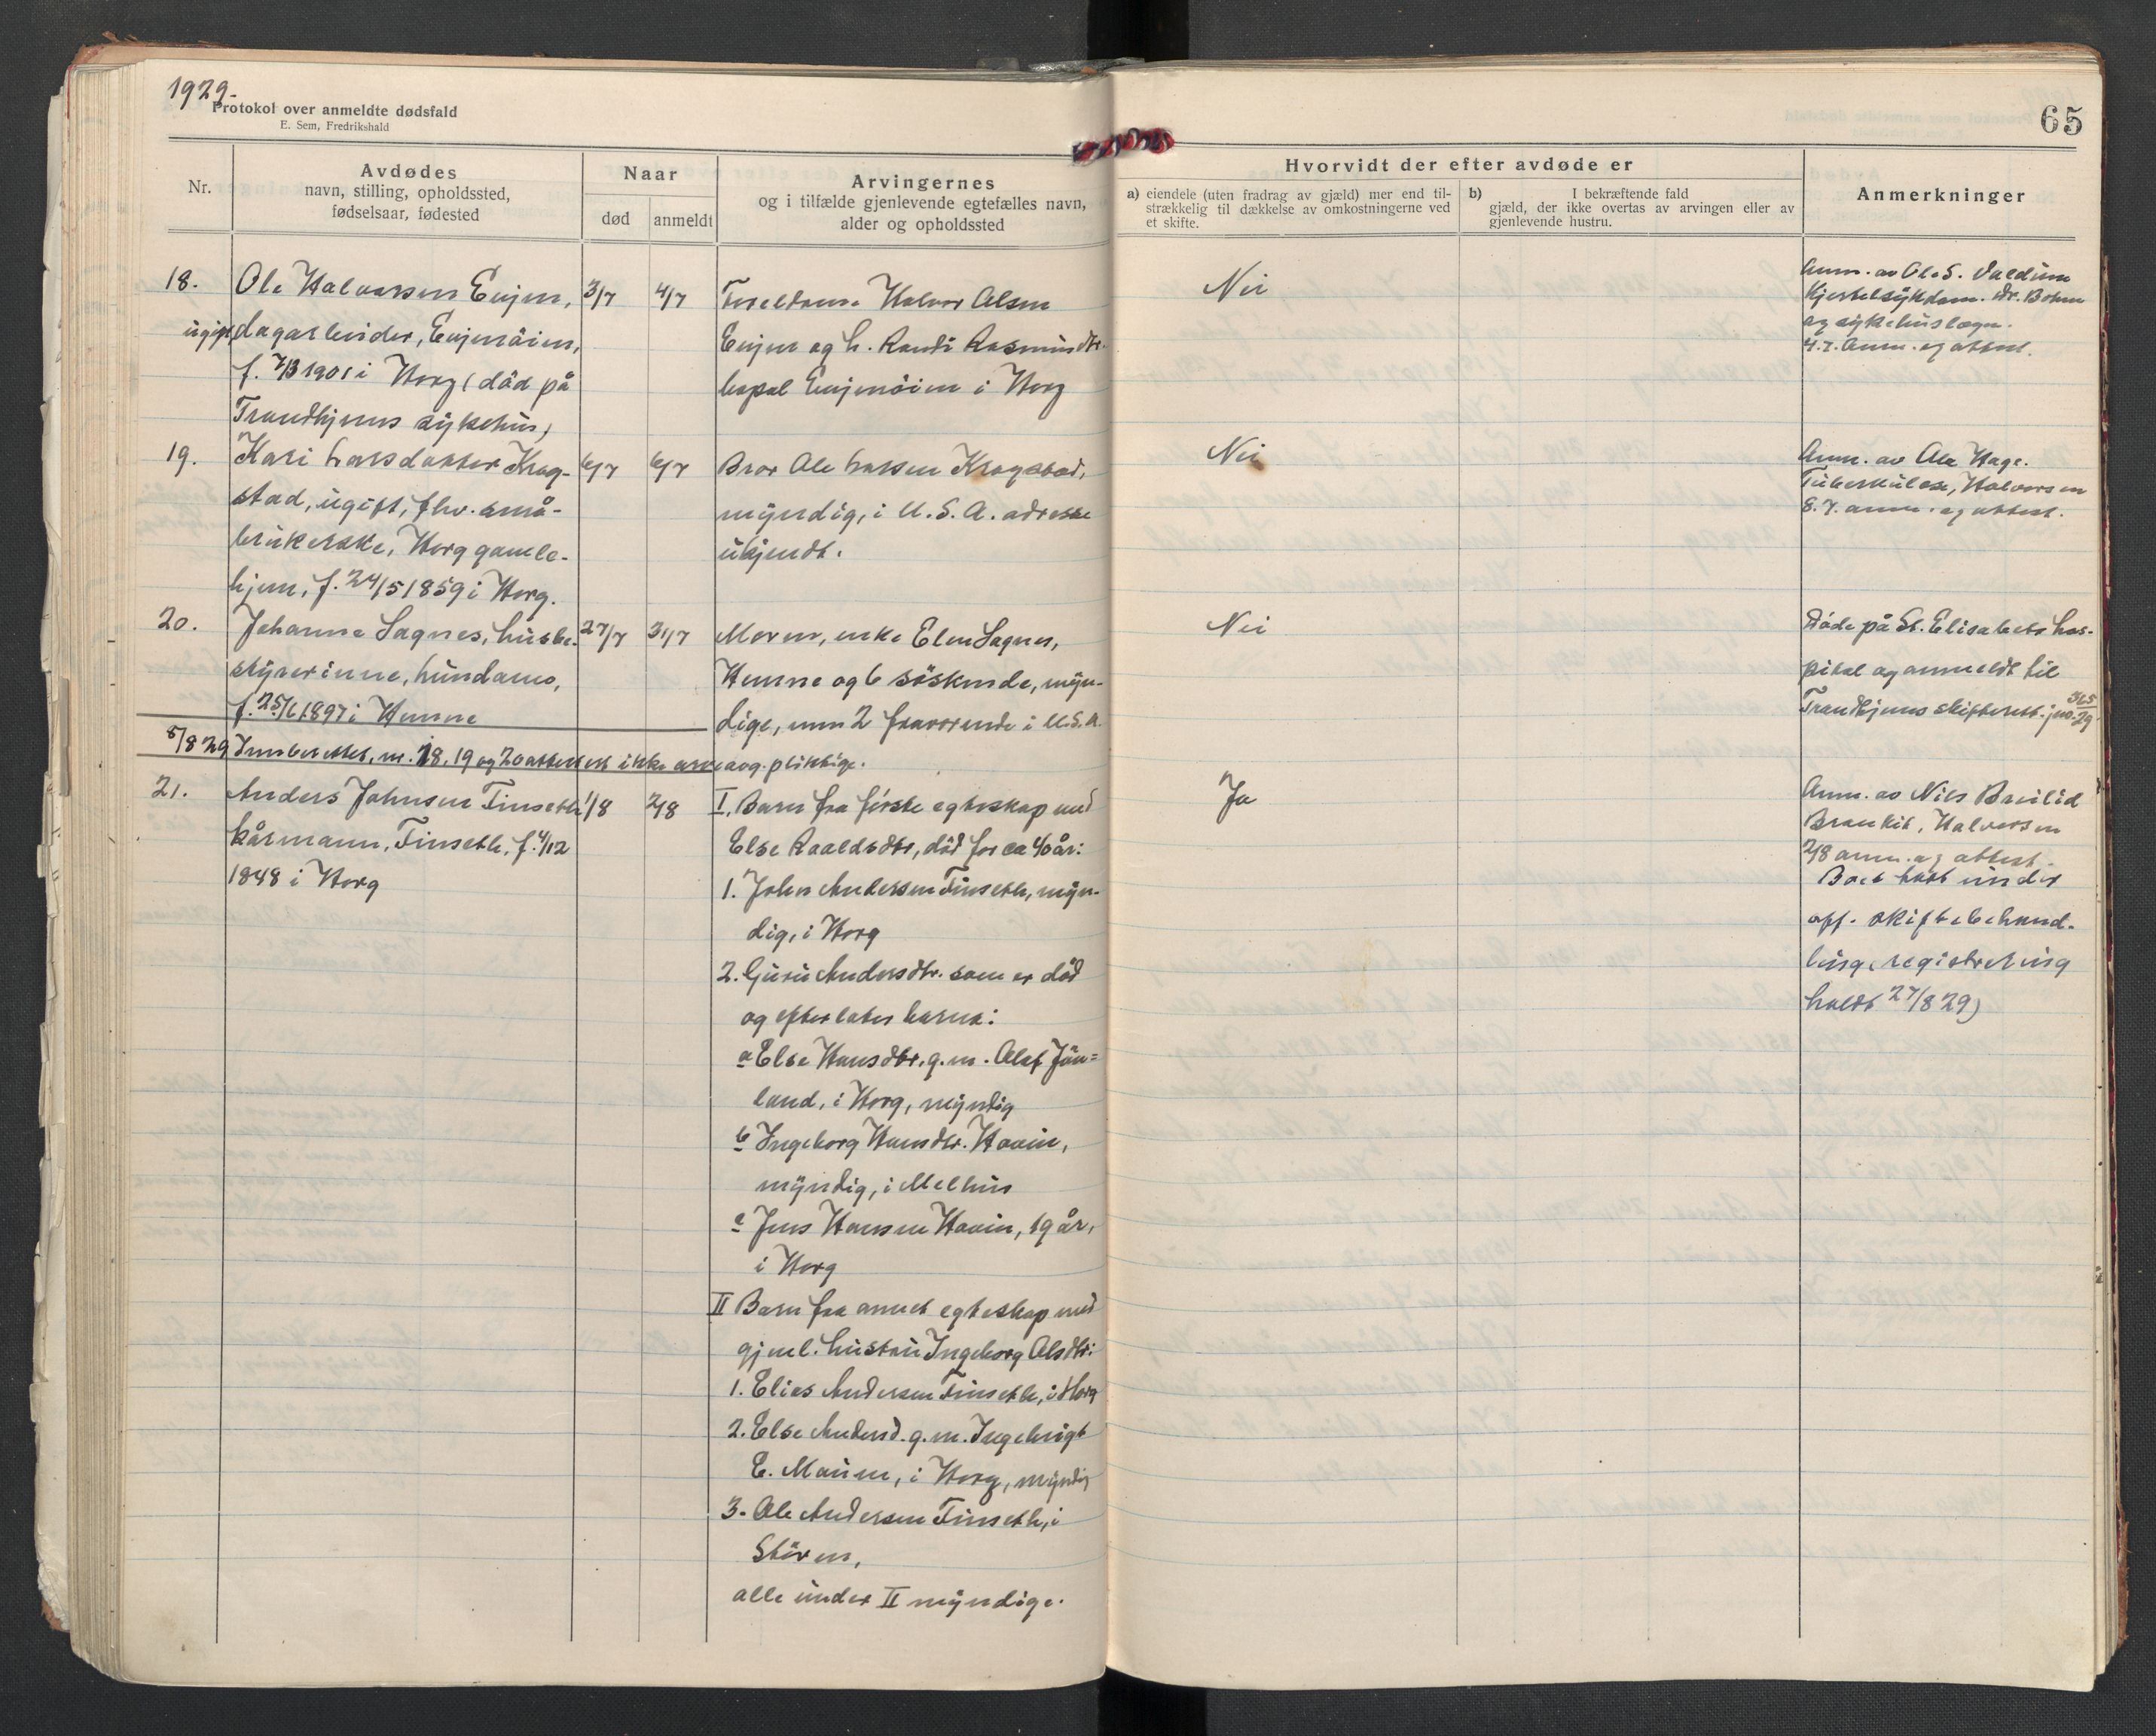 1929.
Protokol over anmeldte dødsfald
E. Sem, Fredrikshald
65
Nr.
Avdødes
navn, stilling, opholdssted,
fødselsaar, fødested
Naar
død
anmeldt
Arvingernes
og i tilfælde gjenlevende egtefælles navn,
alder og opholdssted
Hvorvidt der efter avdøde er
a) eiendele (uten fradrag av gjæld) mer end til-
strækkelig til dækkelse av omkostningerne ved
et skifte.
b) I bekræftende fald
gjæld, der ikke overtas av arvingen eller av
gjenlevende hustru.
Anmerkninger
18.
Ole Halvorsen Enjem,
ugift, dagarbeider, Enjemöien,
f. 7/3 1901 i Horg (död på
Trondhjems sykehus)
3/7
4/7
Foreldrene Halvor Olsen
Enjem og h. Randi Rasmusdtr.
bopæl Enjemöien i Horg
Nei
Anm. av Ole S.
Hjertesykdom. Dr.
og sykehuslæge.
4.7. Anm. og attest.
19.
Kari Larsdatter Krog-
stad, ugift, fhv. små-
brukerske, Horg gamle-
hjem, f. 24/5 1859 i Horg.
6/7
6/7
Bror Ole Larsen Krogstad,
myndig, i U.S.A. adresse
ukjendt.
Nei
Anm. av Ole Hage.
Tuberkulose, Halvorsen
8.7. anm. og attest.
20.
Johanne Sagnes, husbe-
styrerinne, Lundamo,
f. 25/6 1897 i Hemne
27/7
31/7
Moren, enke Elen Sagnes,
Hemne og 6 söskende, myn-
dige, men 2 fraværende i U.S.A.
Nei
Döde på St. Elisabets hos-
pital og anmeldt til
Trondhjems skifterett. jno. 365/29
5/8 29 Innberettet, nr. 18, 19 og 20 attestert ikke arveavg. pliktige.
21.
Anders Johnsen Finseth
kårmann, Finseth, f. 4/12
1848 i Horg
1/8
2/8
I. Barn fra förste egteskap med
Else Roaldsdtr, död for ca 40 år:
1. John Andersen Finseth, myn-
dig, i Horg
2. Guru Andersdtr. som er död
og efterlater barna:
a Else Hansdtr. g.m. Olaf Jön-
land, i Horg, myndig
b Ingeborg Hansdtr. Hovin,
myndig, i Melhus
c Jens Hansen Hovin, 19 år,
i Horg
II Barn fra annet egteskap med
gjenl. hustru Ingeborg Olsdtr:
1. Elias Andersen Finseth, i Horg
2. Else Andersd. g.m. Ingebrigt
E. Moum, i Horg, myndig
3. Ole Andersen Finseth, i
Stören,
alle under II myndige.
Ja
Anm. av Nils Breilid
Bronkit, Halvorsen
2/8 anm. og attest.
Boet tatt under
off. skiftebehand-
ling, registrering
holdt 27/8 29)